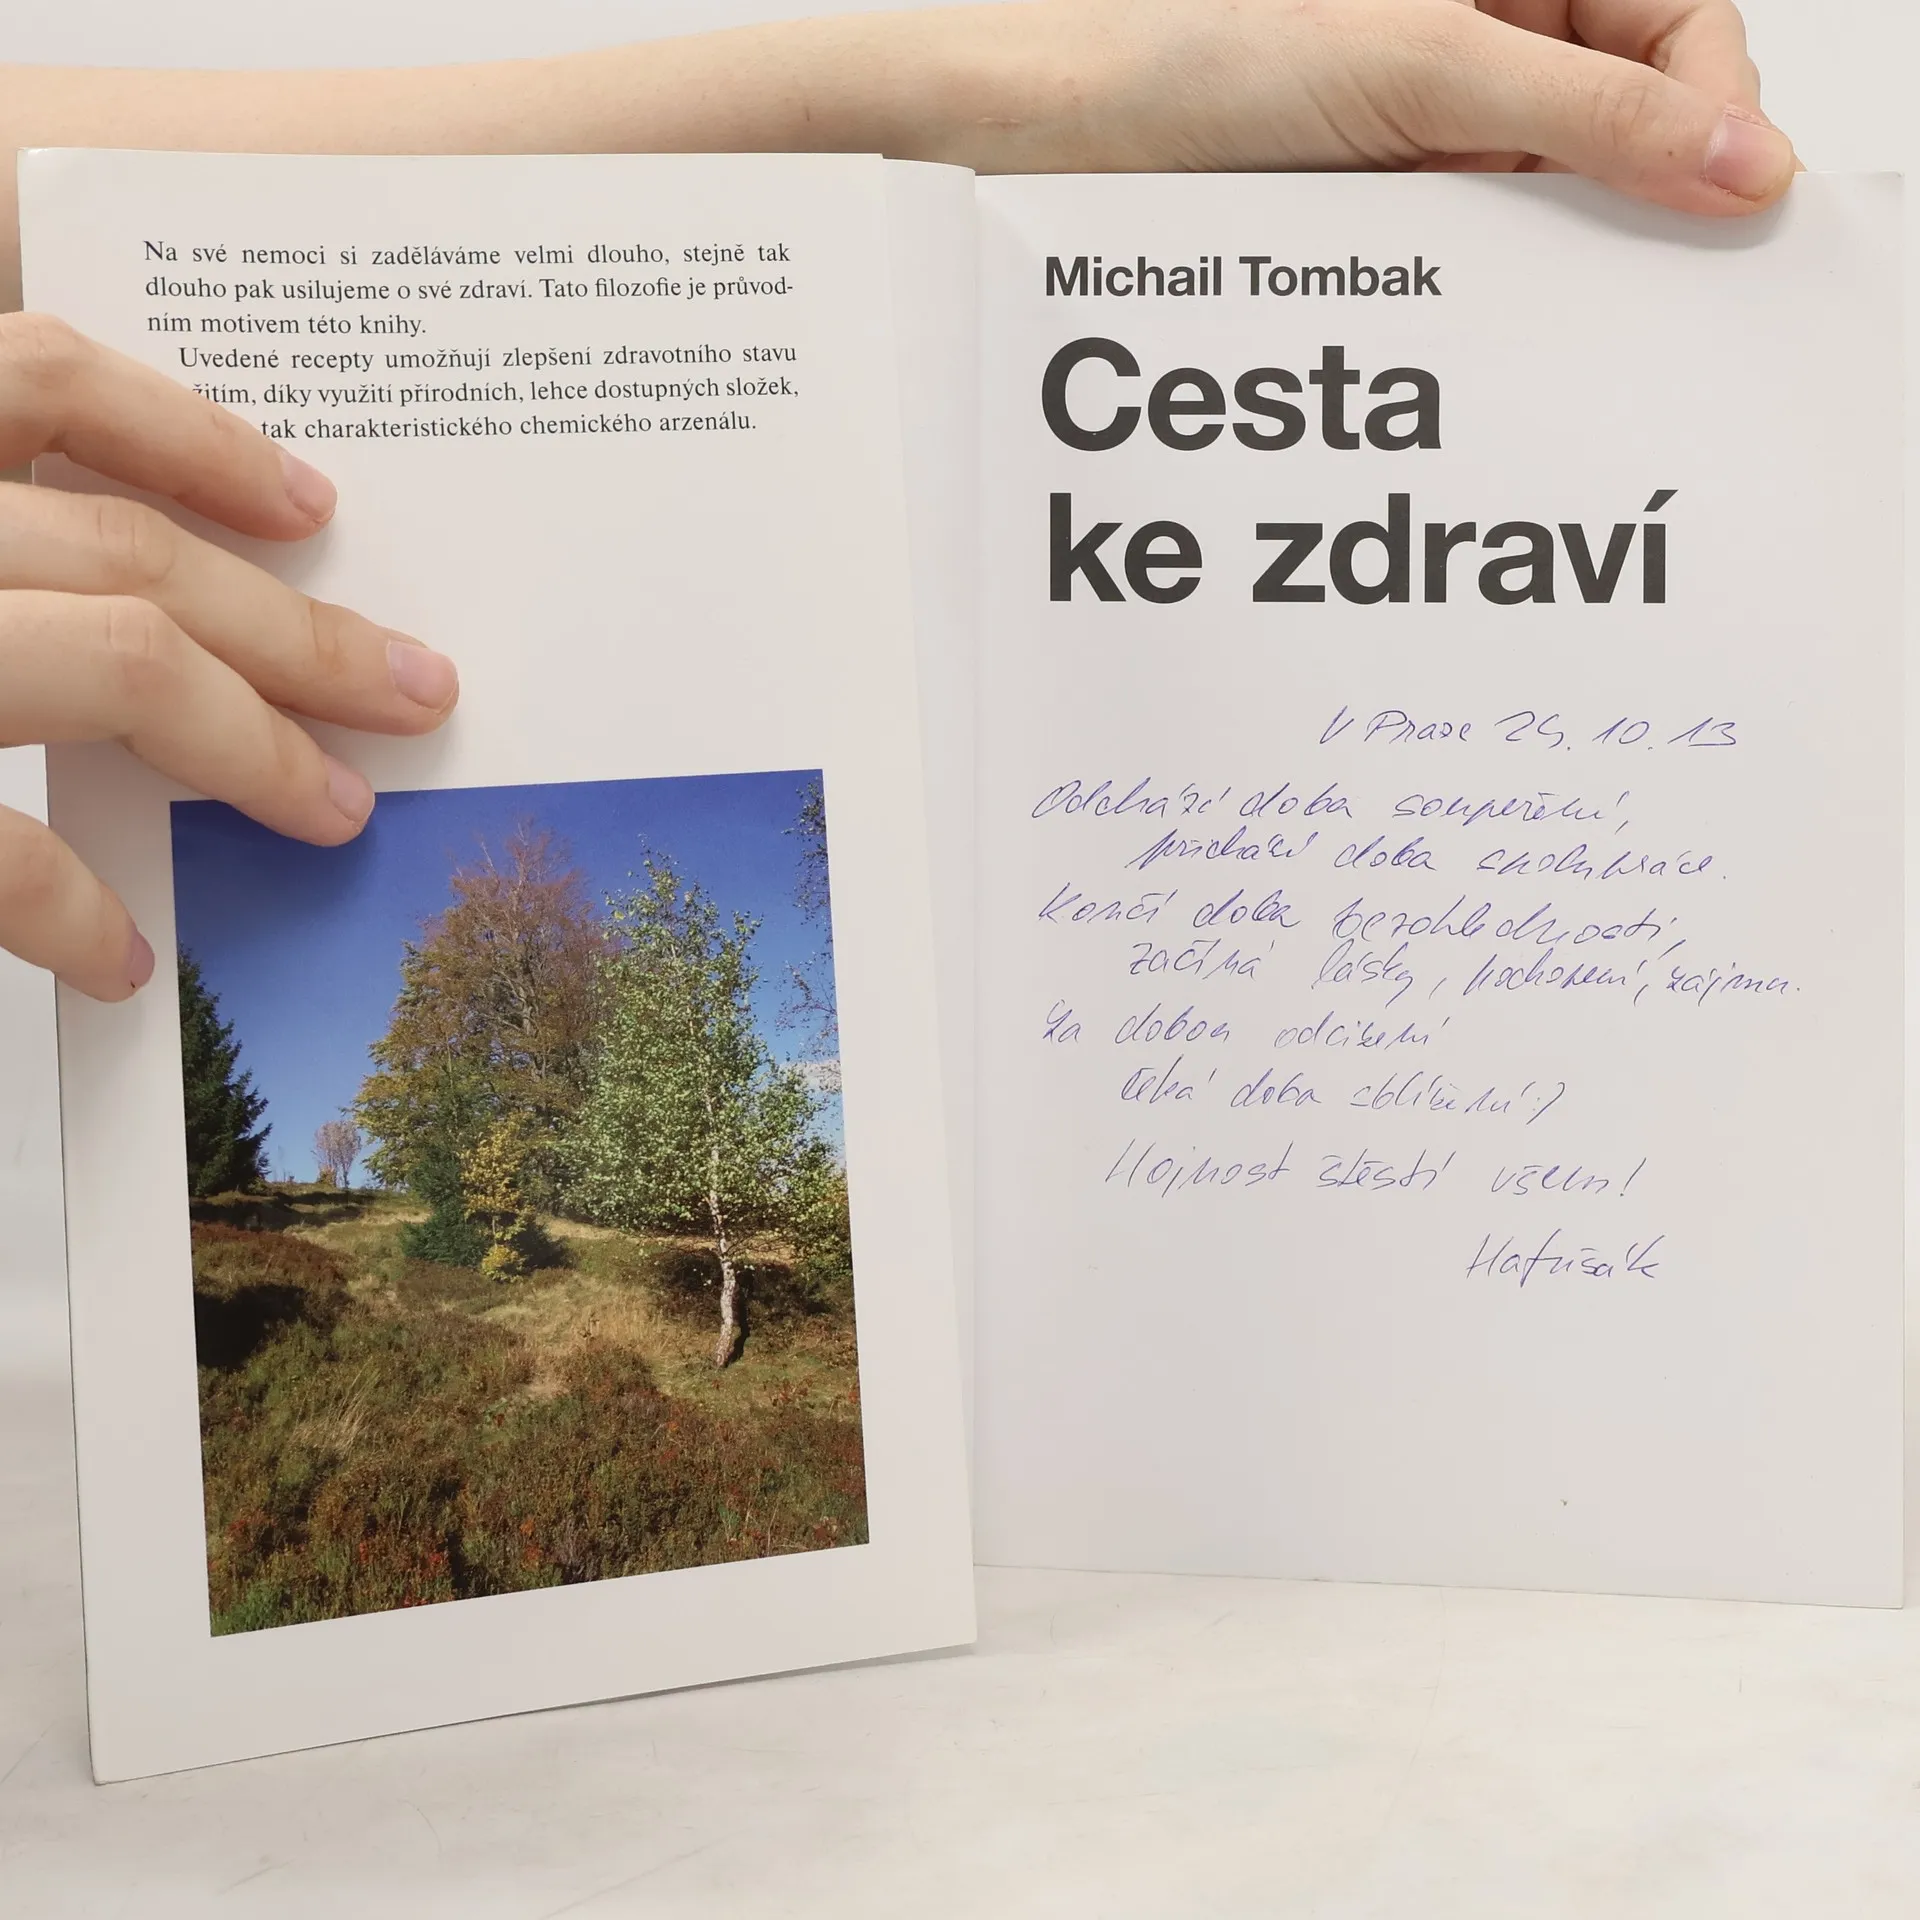 Na své nemoci si zaděláváme velmi dlouho, stejně tak
dlouho pak usilujeme o své zdraví. Tato filozofie je průvod-
ním motivem této knihy.
Uvedené recepty umožňují zlepšení zdravotního stavu
žitím, díky využití přírodních, lehce dostupných složek,
tak charakteristického chemického arzenálu.
Michail Tombak
Cesta
ke zdraví
V Praze 10. 13
Odchází doba soupeření,
přichází doba spoluhráče.
Končí doba bezohlednosti,
začíná lásky, pochopení, zájmu.
Za dobou odcizení
čeká doba sblížení :)
Hojnost štěstí všem!